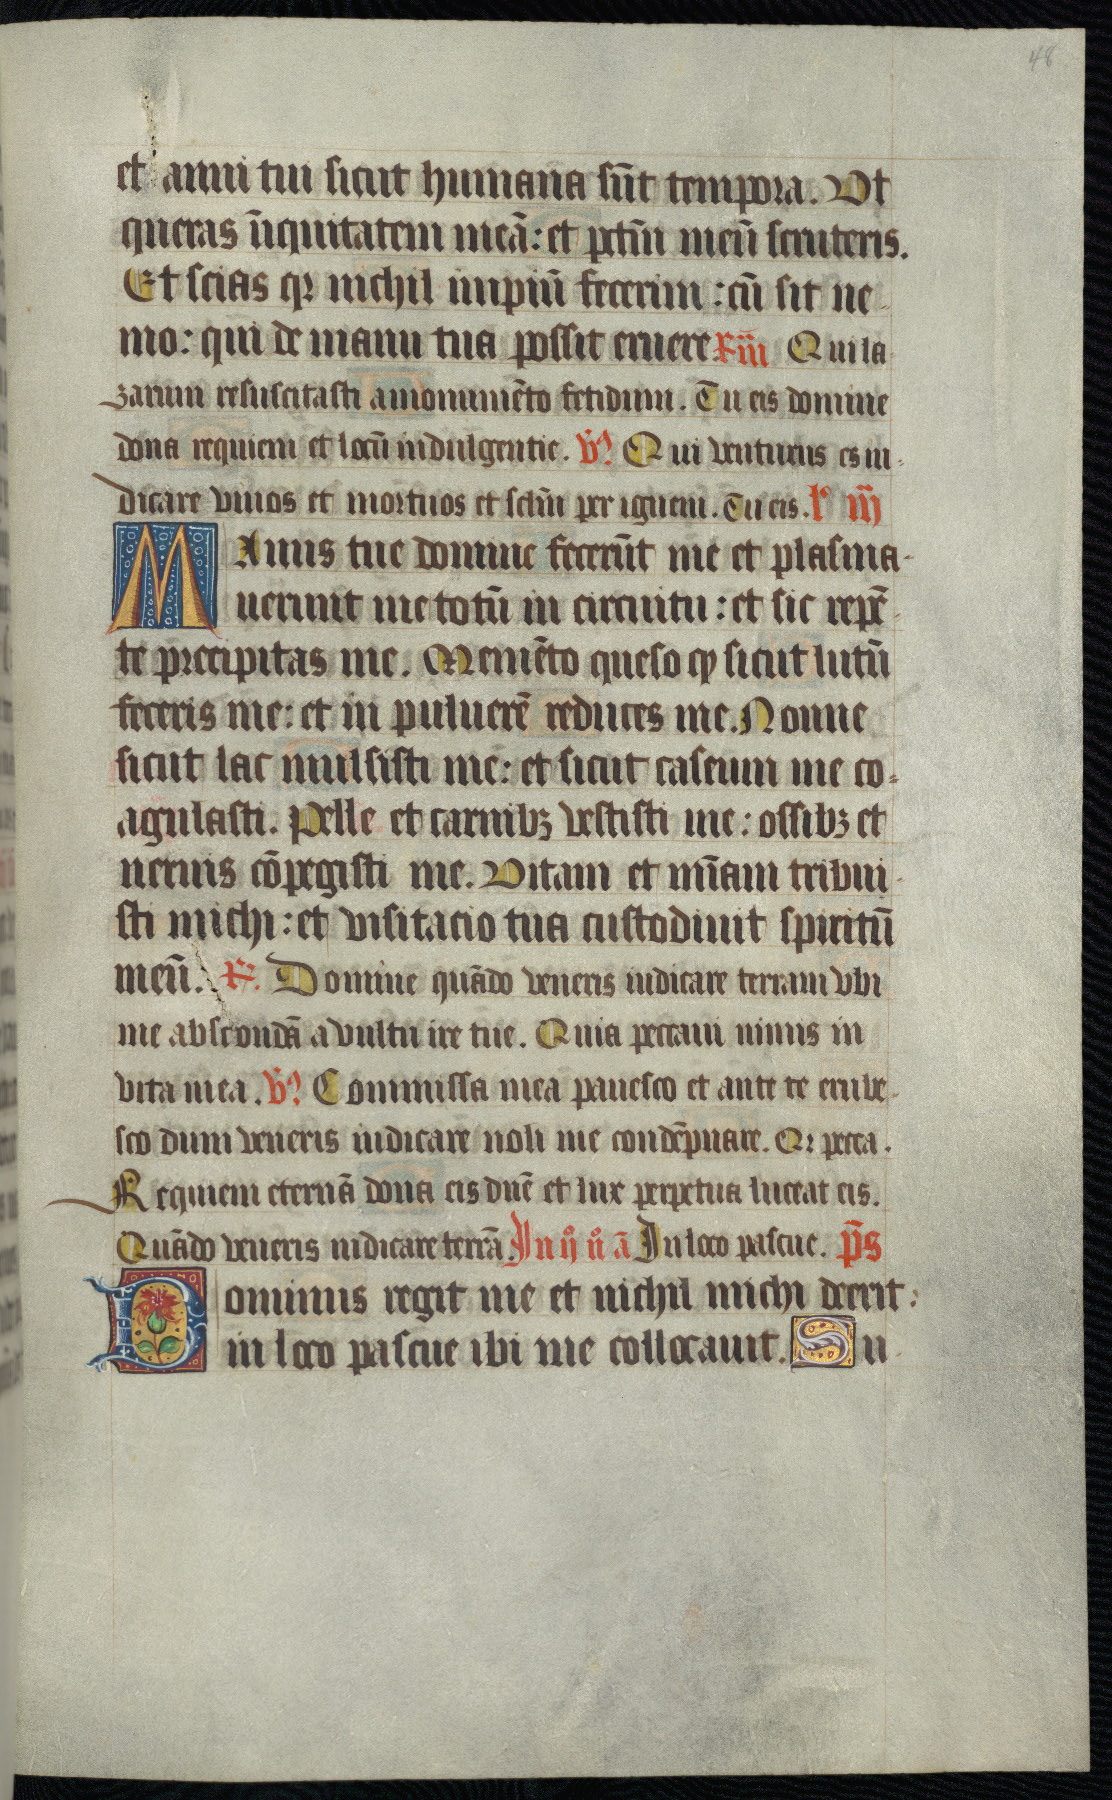 48
et anni tui sicut humana sūt tempora. Vt
queras īiquitatem meā: et pctm̄ meū scruteris.
Et scias qꝛ nichil impiū fecerim: cū sit ne-
mo: qui de manu tua possit eruere ℟ Qui la-
zarum resuscitasti a monumēto fetidum. Tu eis domine
dona requiem et locū indulgentie. ℣ Qui venturus es iu-
dicare viuos et mortuos et sclm̄ per ignem. Tu eis. l̄ iij
MAnus tue domine fecerūt me et plasma-
uerunt me totū in circuitu: et sic repē-
te precipitas me. Memēto queso ꝙ sicut lutū
feceris me: et in puluerē reduces me. Nonne
sicut lac mulsisti me: et sicut caseum me co-
agulasti. Pelle et carnibꝫ vestisti me: ossibꝫ et
neruis cōpegisti me. Vitam et mīam tribui-
sti michi: et visitacio tua custodiuit spiritū
meū. ℟. Domine quādo veneris iudicare terram vbi
me abscondā a vultu ire tue. Quia peccaui nimis in
vita mea. ℣ Commissa mea pauesco et ante te erube-
sco dum veneris iudicare noli me condēpnare. Qꝛ pecca.
Requiem eternā dona eis dnē et lux perpetua luceat eis.
Quādo veneris iudicare terrā. In ij n̊ ā In loco pascue. p̄s
Dominus regit me et nichil michi deerit:
in loco pascue ibi me collocauit. Su-